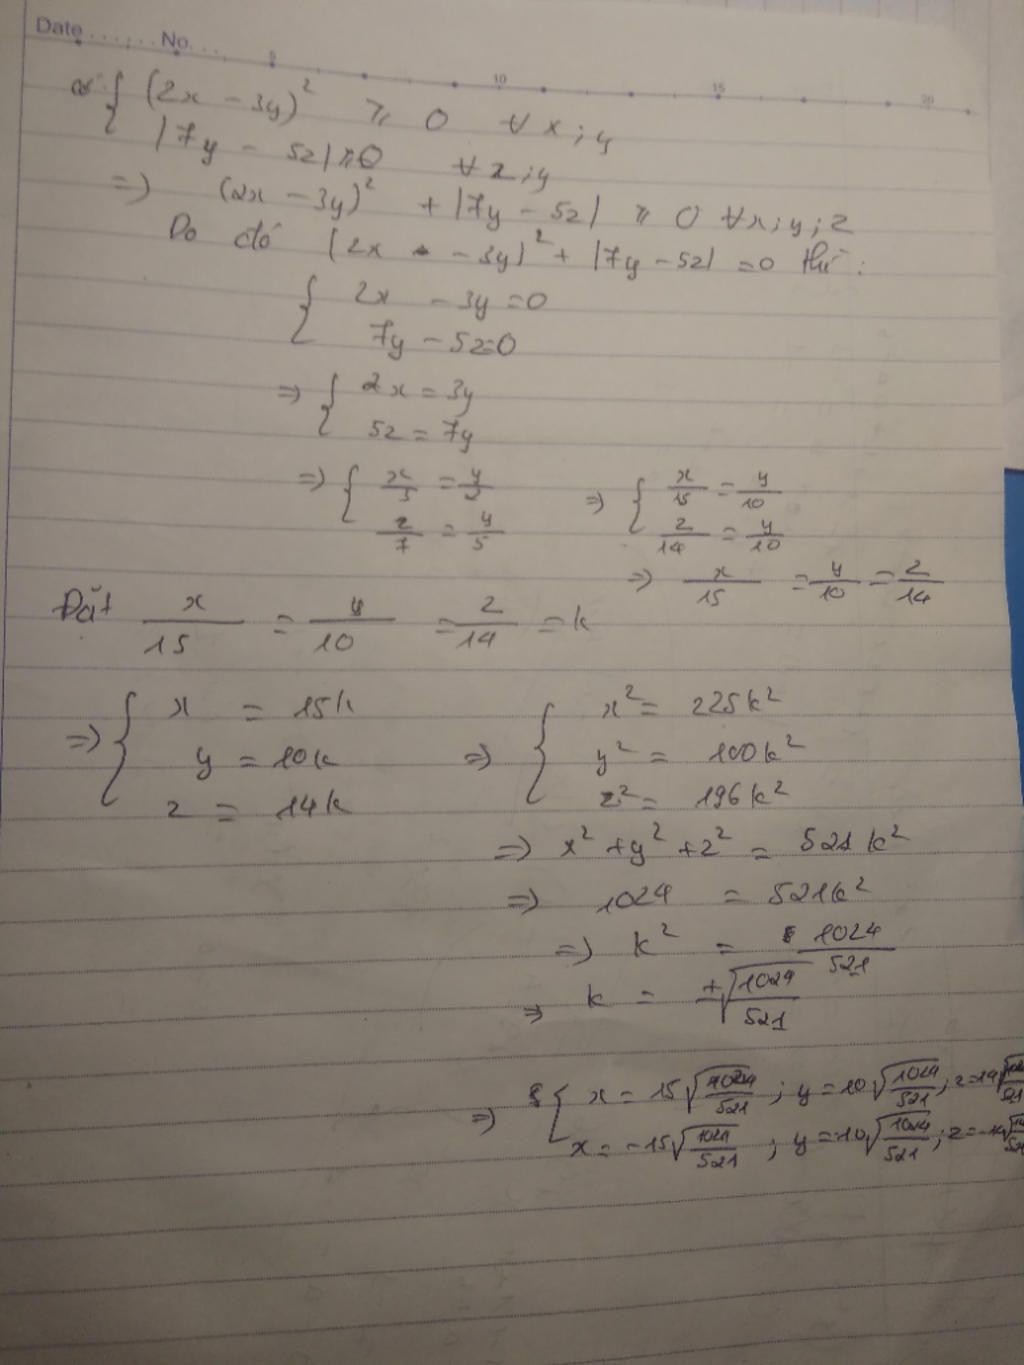 Date.......No....
5 10 15 20
{ (2x - 3y)² ⩾ 0 ∀ x; y
|7y - 5z| ⩾ 0 ∀ z; y
=> (2x - 3y)² + |7y - 5z| ⩾ 0 ∀x; y; z
Do đó (2x - 3y)² + |7y - 5z| = 0 thì:
{ 2x - 3y = 0
7y - 5z = 0
=> { 2x = 3y
5z = 7y
=> { x/3 = y/2 => { x/15 = y/10
z/7 = y/5 z/14 = y/10
=> x/15 = y/10 = z/14
Đặt x/15 = y/10 = z/14 = k
=> { x = 15k => { x² = 225k²
y = 10k y² = 100k²
z = 14k z² = 196k²
=> x² + y² + z² = 521k²
=> 1024 = 521k²
=> k² = 1024/521
=> k = ±√(1024/521)
=> [ x = 15√(1024/521) ; y = 10√(1024/521) ; z = 14√
x = -15√(1024/521) ; y = -10√(1024/521) ; z = -14√